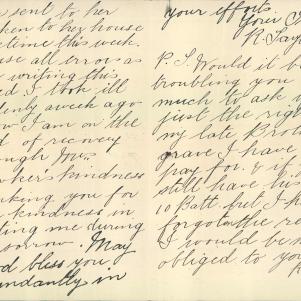 sent to her
ken to her house
time this week.
use all errors as
writing this
d I took ill
denly a week ago
ow I am on the
d of recovery
ough Mrs.
ker's kindness
nking you for
kindness in
ling me during
sorrow. May
od bless you
undantly in
your efforts.
Your
R. Tay
P.S. Would it be
troubling you
much to ask
just the righ
my late Brot
grave I have
pay for. & if
still have his
10 Batt. but I h
forgot the re
I would be m
obliged to yo